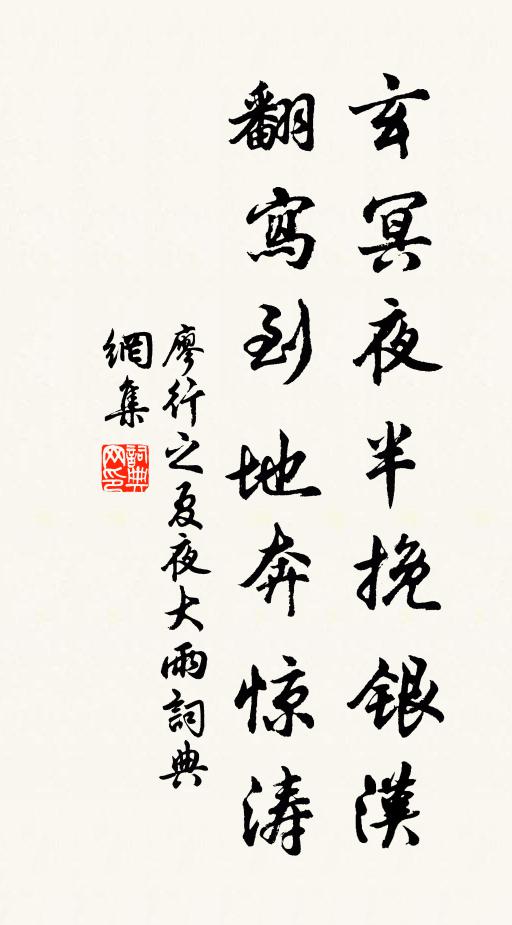 玄冥夜半挽銀漢
翻寫到地奔惊濤
廖行之夏夜大雨詞典
網集
詞典网印